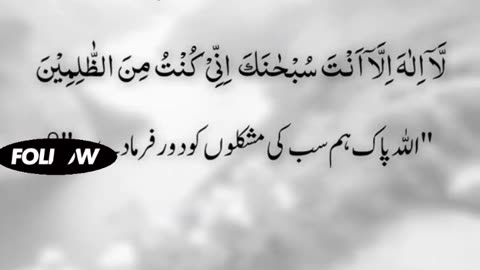 لَّآ اِلٰهَ اِلَّآ اَنْتَ سُبْحٰنَكَ اِنِّىْ كُنْتُ مِنَ الظّٰلِمِيْنَ
"اللہ پاک ہم سب کی مشکلوں کو دور فرما
FOLLOW